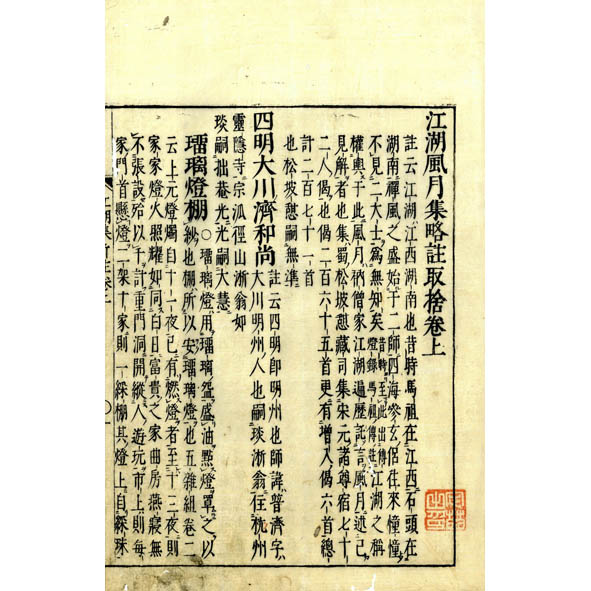 江湖風月集略註取捨卷上
註云江湖江西湖南也昔時馬祖在江西石頭在
湖南禪風之盛始于二師四海參玄侶往來憧憧
不見二大士爲無知矣昔時至此出傳燈錄馬祖傳江湖之稱
權輿于此風月衲僧家江湖遍歷託言風月述己
見解者也集蜀松坡憩藏司集宋元諸尊宿七十
二人偈也偈二百六十五首更有增入偈六首總
計二百七十一首
也松坡憩嗣無準
四明大川濟和尚註云四明即明州也師諱普濟字
大川明州人也嗣琰浙翁住杭州
靈隱寺宗派徑山浙翁如
琰嗣拙菴光光嗣大慧
璢璃燈棚○璢璃燈用璢璃盌盛油點燈罩之以
紗也棚所以安璢璃燈也五雜組卷二
云上元燈燭自十一夜已有燃燈者至十三夜則
家家燈火照耀如同白日富貴之家曲房燕寢無
不張設殆以千計重門洞開縱人遊玩市上則每
家門首懸燈二架十家則一綵棚其燈上自綵珠